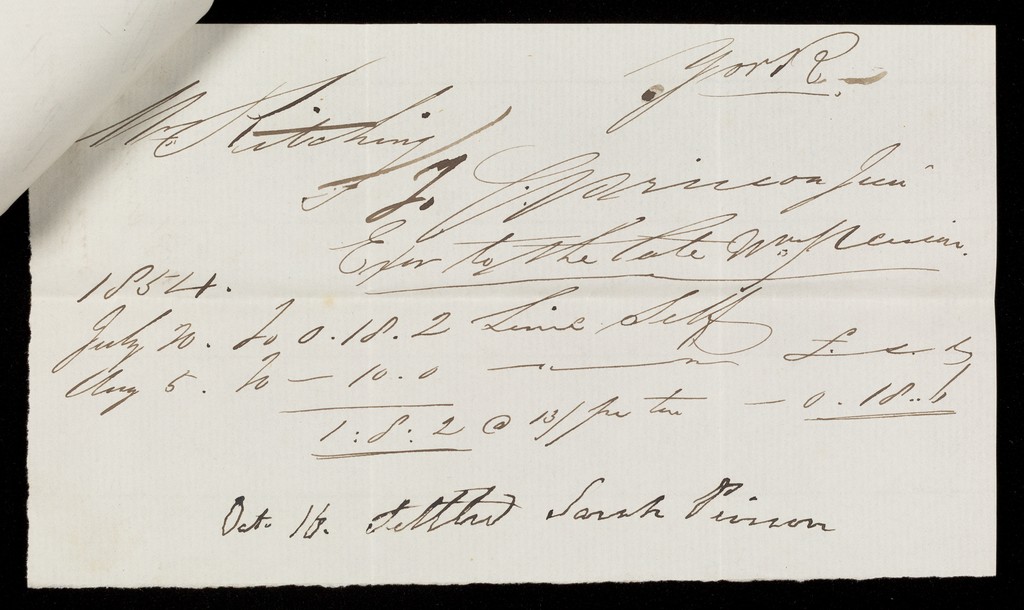 York
Mr Kitching
To G. Harrison Junr
Exor to the late Wm Pearson.
1854.
July 20. To 0.18.2 Lime Self
Aug 5. To — 10.0 £. s. d
1:8:2 @ 13/ per ton — 0.18..6
Oct. 16. Settled Sarah Pierson